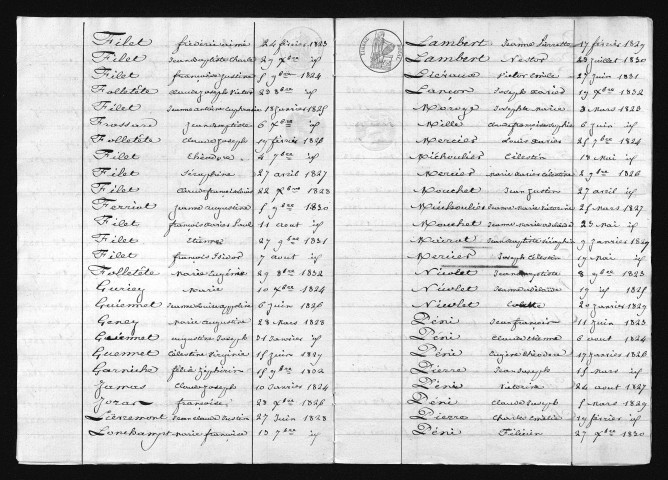 Filet frédéric aimé 24 février 1823
Filet Jean Baptiste Charles 29 9bre id
Filet françoise Justine 5 9bre 1824
Folletête Claude Joseph Victor 23 8bre id
Filet Jeanne 18 janvier 1825
Frossard Jean Baptiste 6 Xbre id
Folletête Claude Joseph 17 février 1826
Filet théodore 4 7bre id
Filet Séraphine 27 avril 1827
Filet 22 Xbre 1828
Ferriot Jeanne augustine 5 9bre 1830
Filet françois Xavier Paul 11 aout id
Filet Etienne 27 9bre 1831
Filet françois 7 aout id
Folletête Marie Eugénie 29 8bre 1832
Guriey Marie 10 Xbre 1824
Guiennet Jeanne Louise 6 juin 1826
Geney Marie augustine 28 Mars 1828
Guiennet augustine Joseph 31 Janvier id
Guennet Célestine Virginie 15 juin 1829
Garniche félix Zéphirin 15 9bre 1832
Jamas Claude Joseph 10 Janvier 1824
Jozas françoise 23 Xbre 1826
Lieremont Jean Claude Justin 27 Juin 1828
Lonchampt Marie françoise 13 7bre id
Lambert Jeanne Pierrette 17 février 1829
Lambert Nestor 23 juillet 1830
Liénaux Victor Emile 27 juin 1831
Lançon Joseph Xavier 19 Xbre 1832
Joseph Marie 3 Mars 1823
Mille 6 juin id
Mercier Louis Xavier 25 9bre 1824
Michoulier Célestin 18 Mai id
Mercier Marie 2 9bre 1826
Mouchet Jean Justin 27 avril id
Michoulier Jeanne Marie Victorine 25 Mars 1827
Mouchet Jeanne Marie 23 Mai id
Jean Baptiste 9 Janvier 1829
Mercier Joseph Célestin 17 Mai id
Nicolet Jean Baptiste 8 9bre 1823
Nicolet Jeanne 19 id 1825
Nicolet Colette 20 janvier 1829
Péni Jean françois 11 juin 1823
Péni Claude Etienne 6 aout 1824
Péni Eugène 17 janvier 1826
Pierre Jean Joseph 15 Mars id
Péni Victoire 24 aout 1827
Péni Claude Joseph 5 Mars 1829
Pierre Charles Emile 19 février id
Péni Félicien 27 Xbre 1830